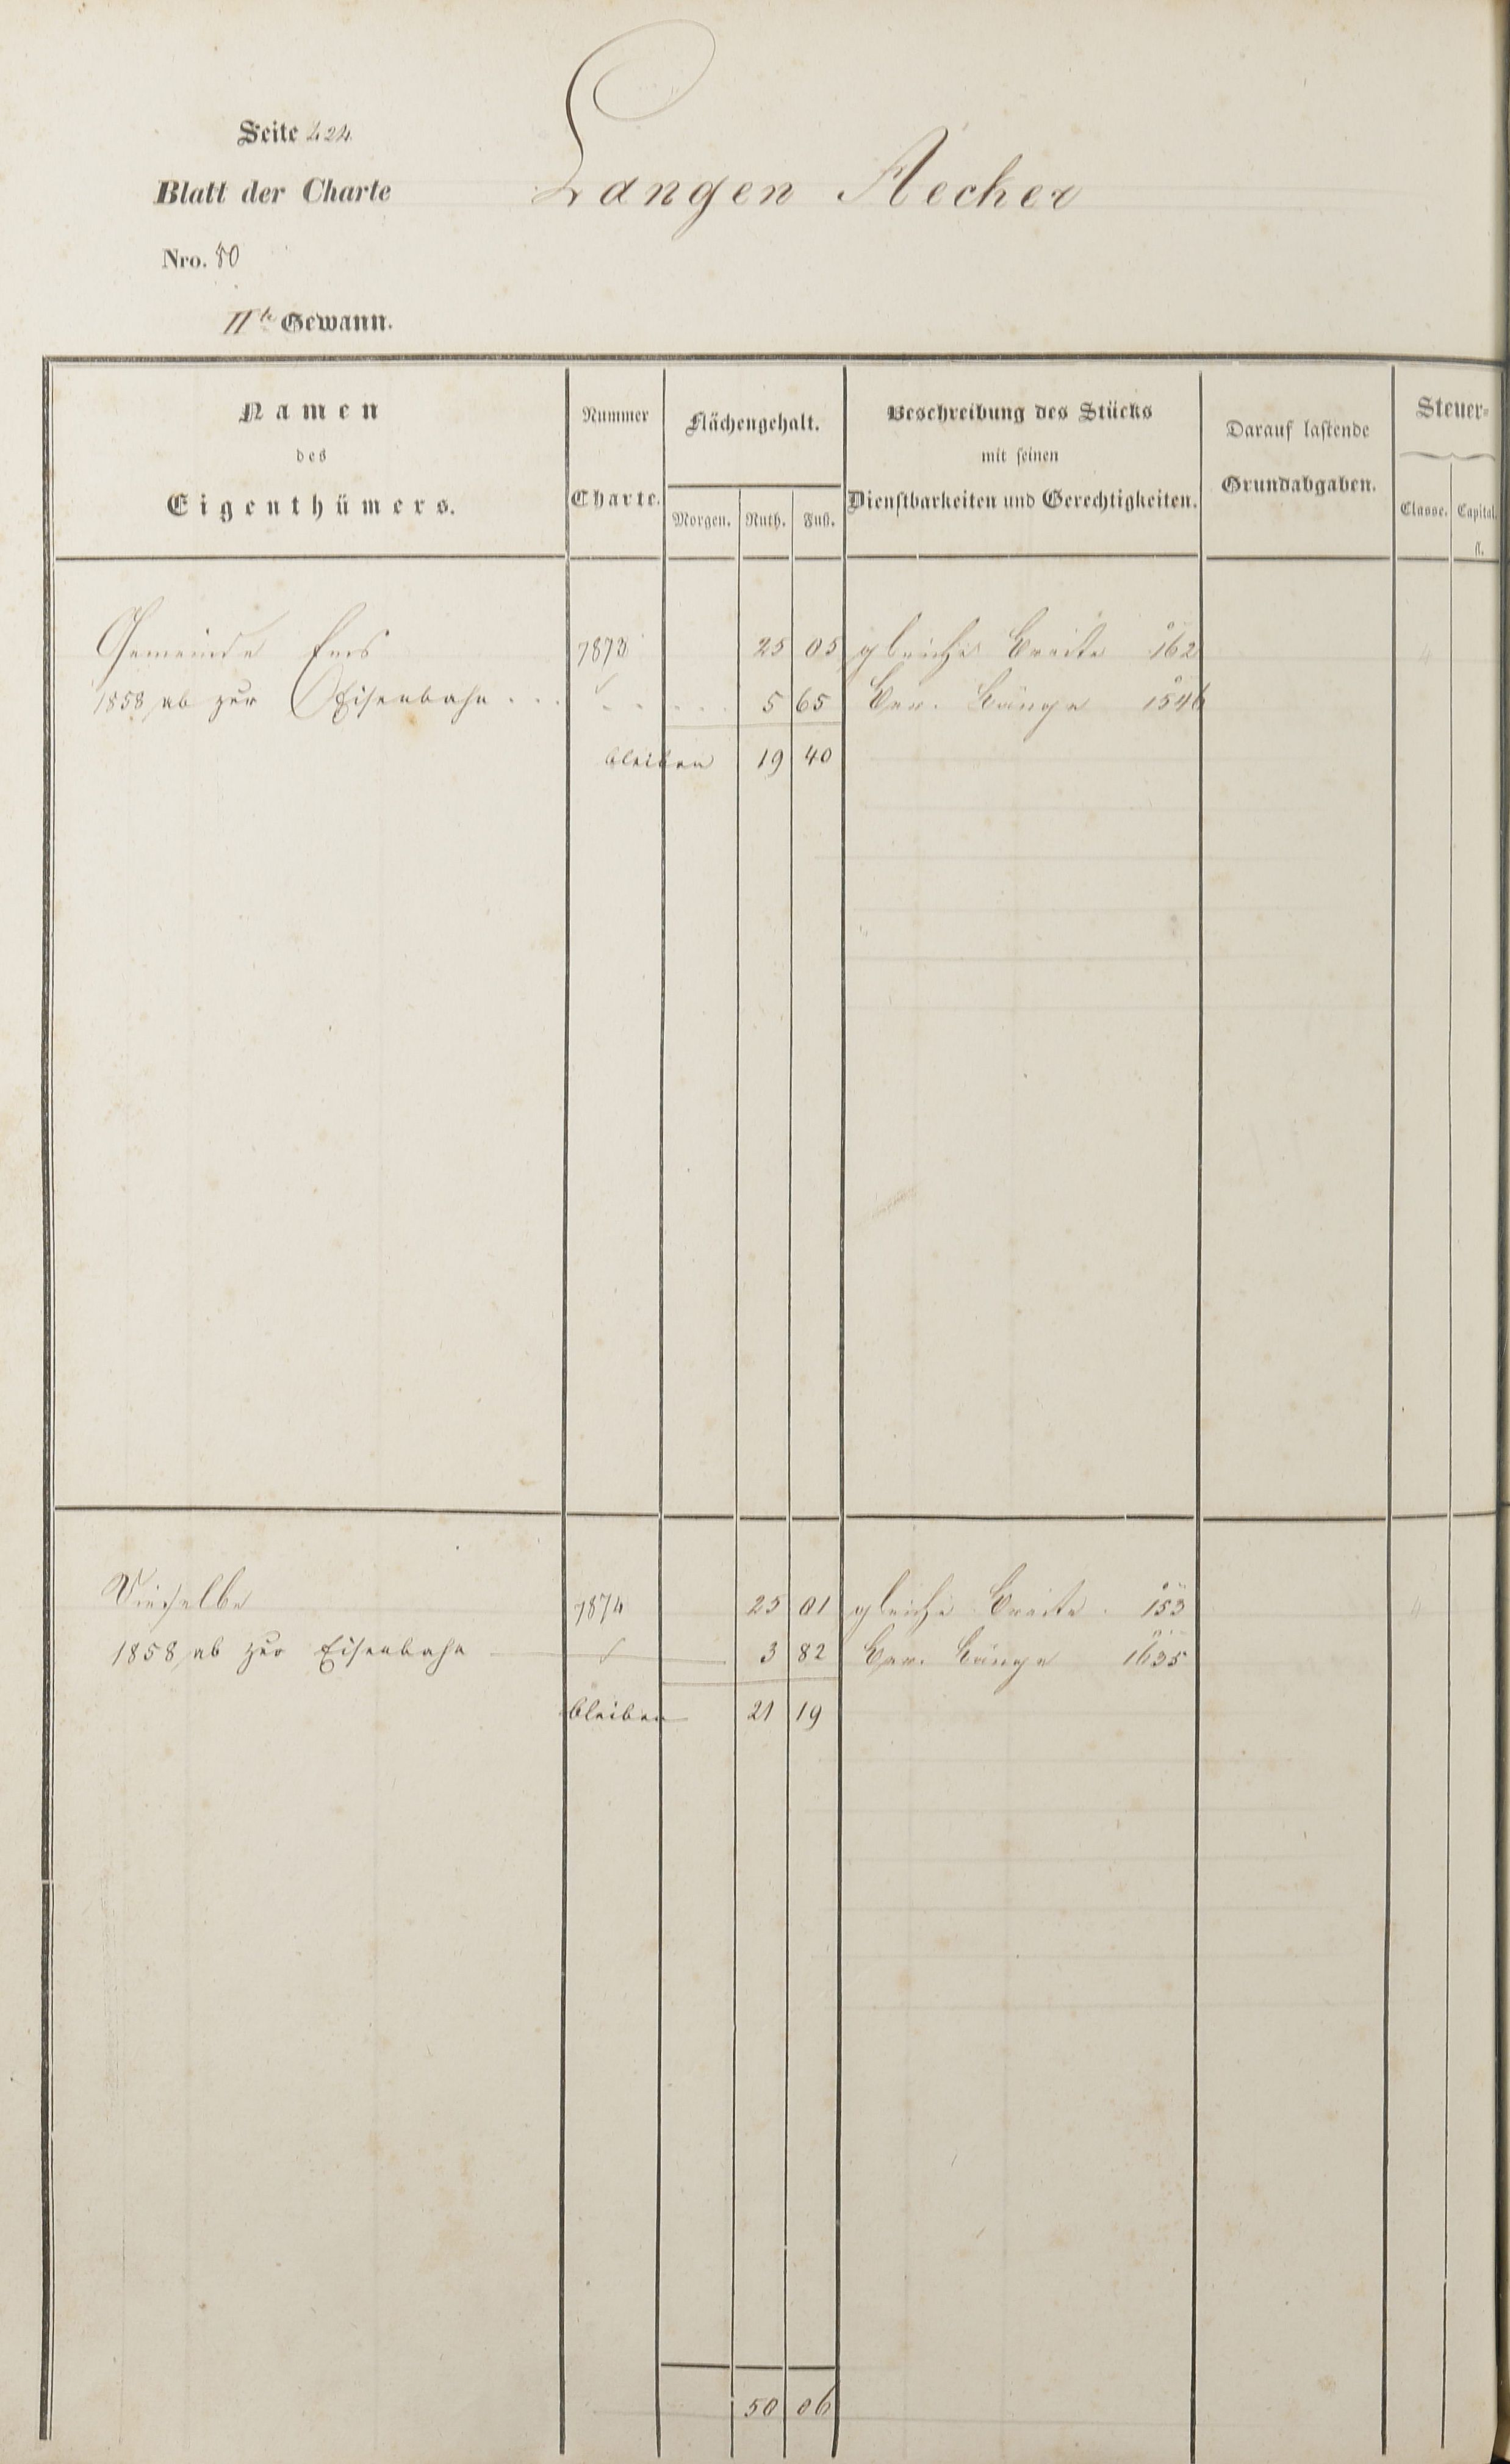 Seite 424
Langen Aecker
Blatt der Charte
Nro. 50
IIte Gewann.
Namen des Eigenthümers.
Nummer Charte.
Flächengehalt.
Morgen. Ruth. Fuß.
Beschreibung des Stücks mit seinen Dienstbarkeiten und Gerechtigkeiten.
Darauf lastende Grundabgaben.
Steuer-
Classe. Capital.
fl.
Gemeinde Ems 7873 25 05 gleiche Breite 162 4
1858 ab zur Eisenbahn . . . 5 65 Ber. Länge 1546
bleiben 19 40
Dieselbe 7874 25 01 gleiche Breite 153 4
1858 ab zur Eisenbahn 3 82 Ber. Länge 1635
bleiben 21 19
50 06